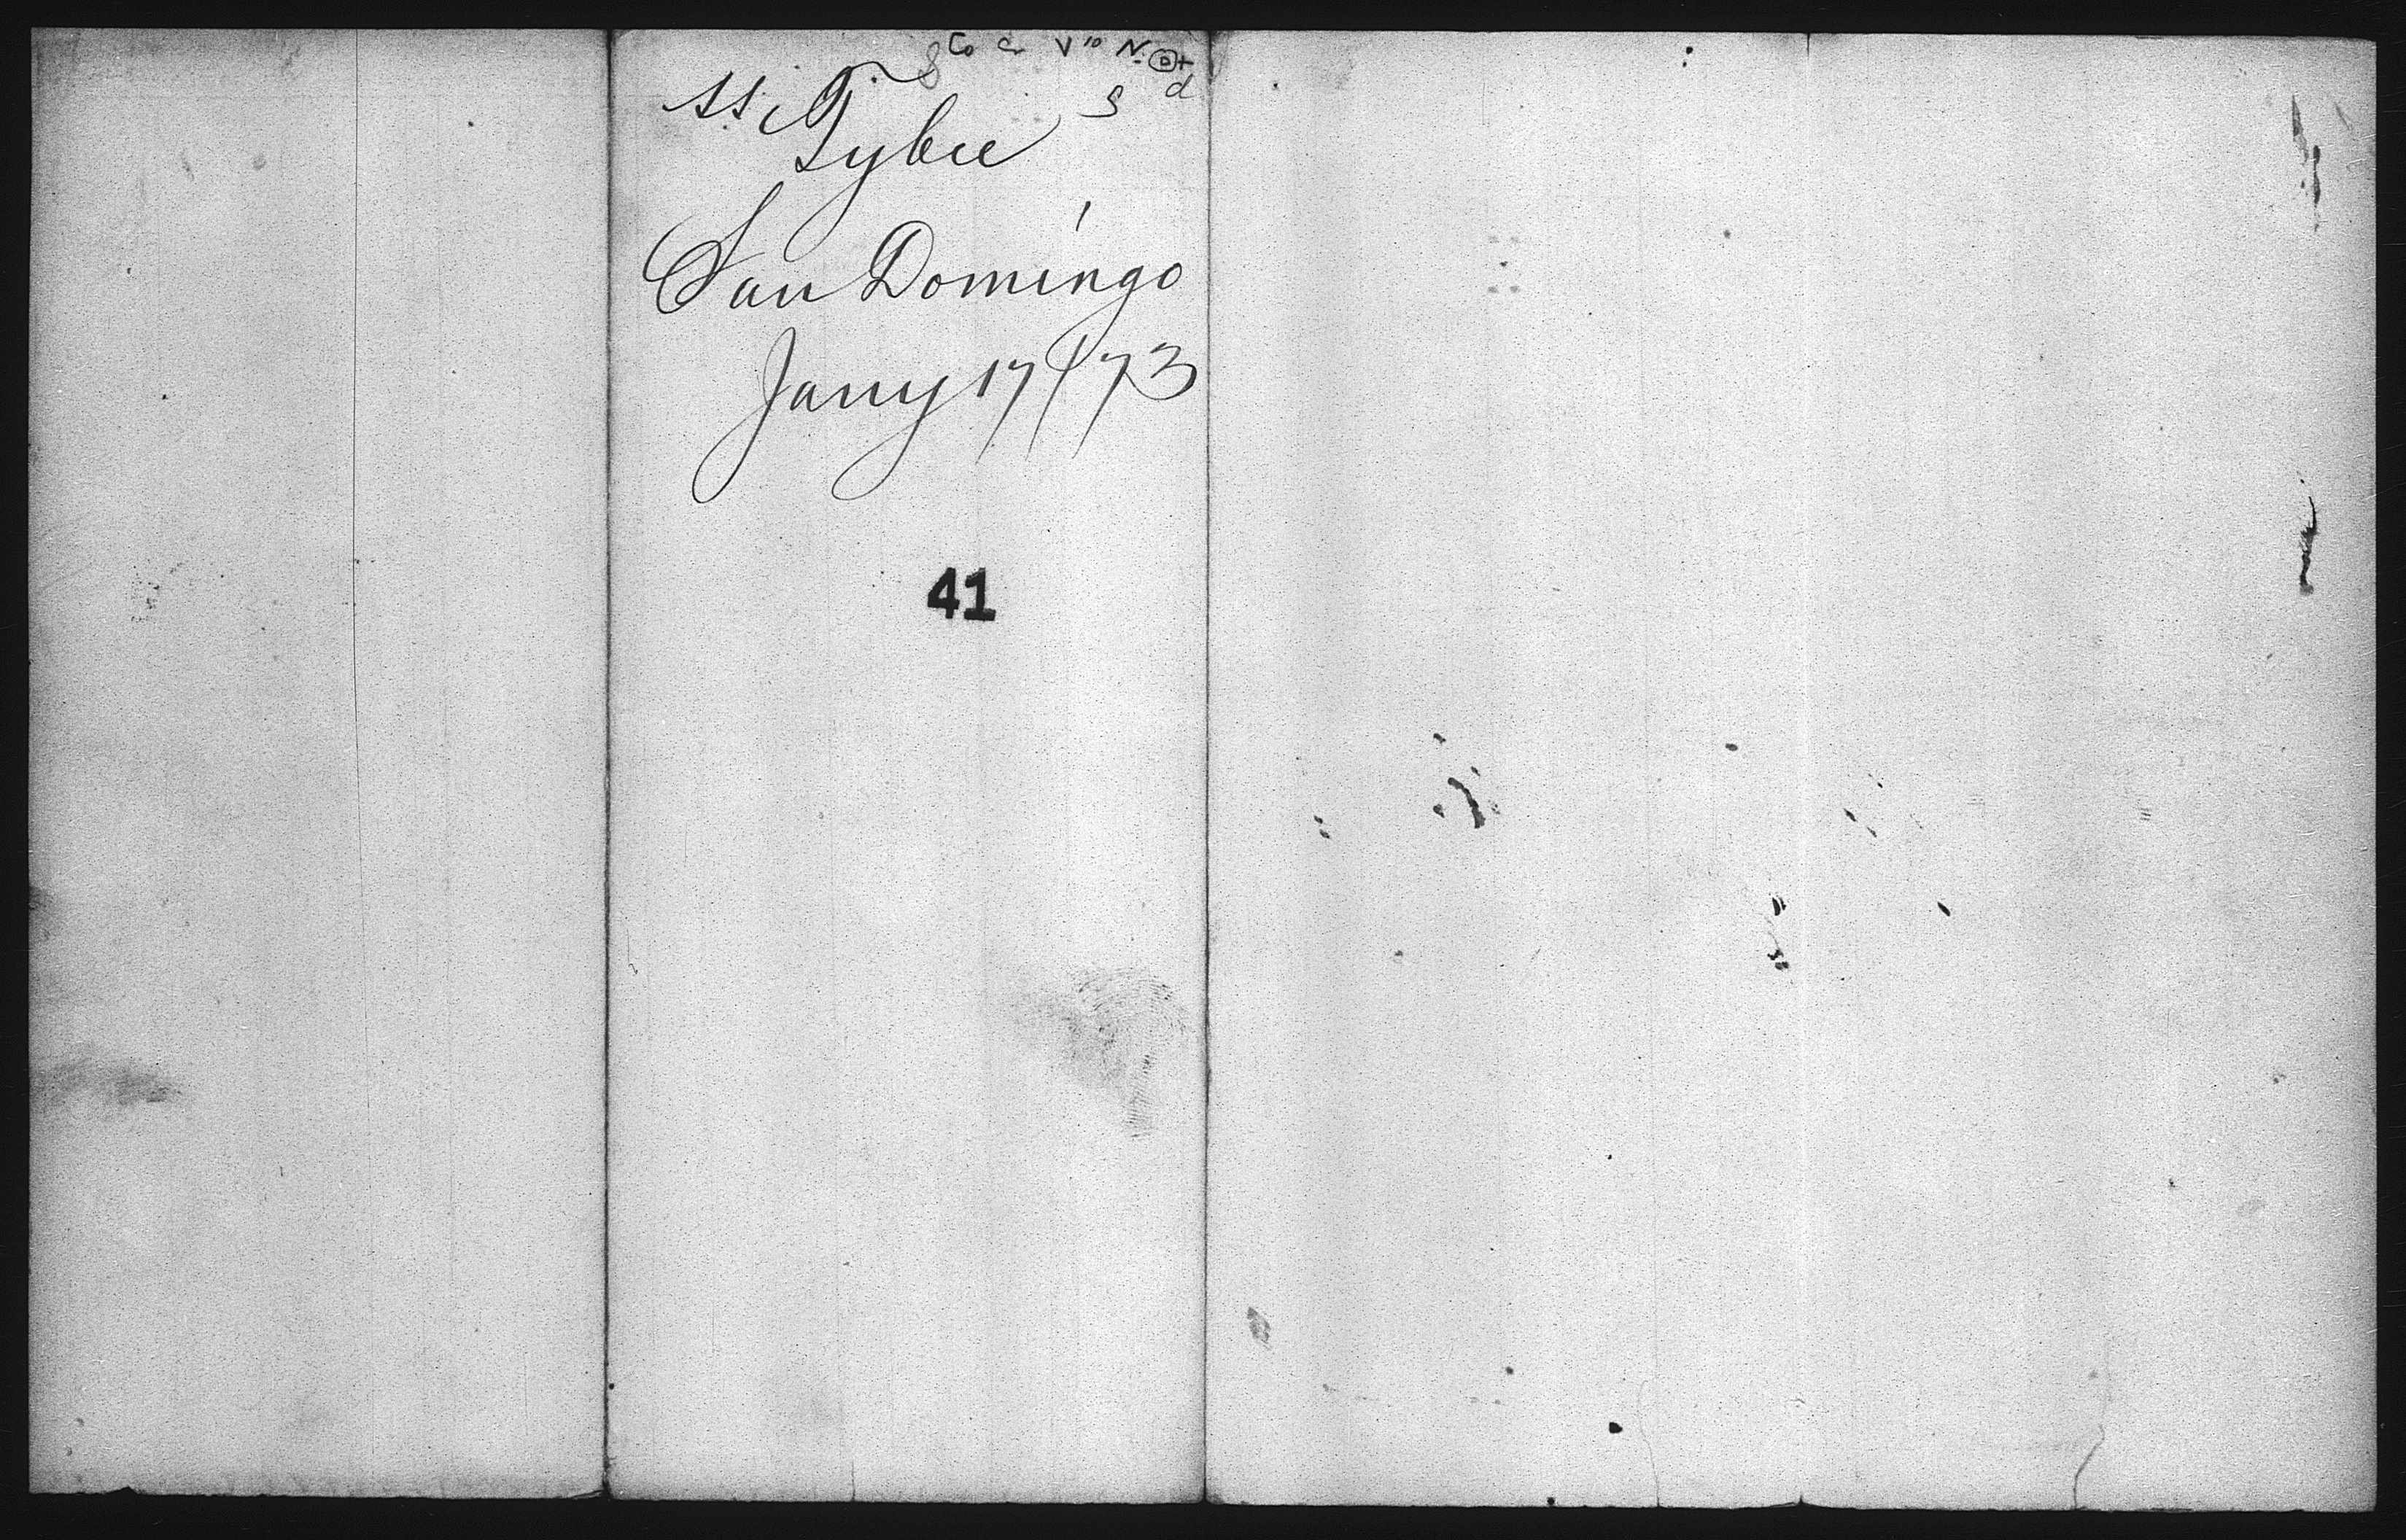 SS Tybee
San Domingo
Jany 17/73
41